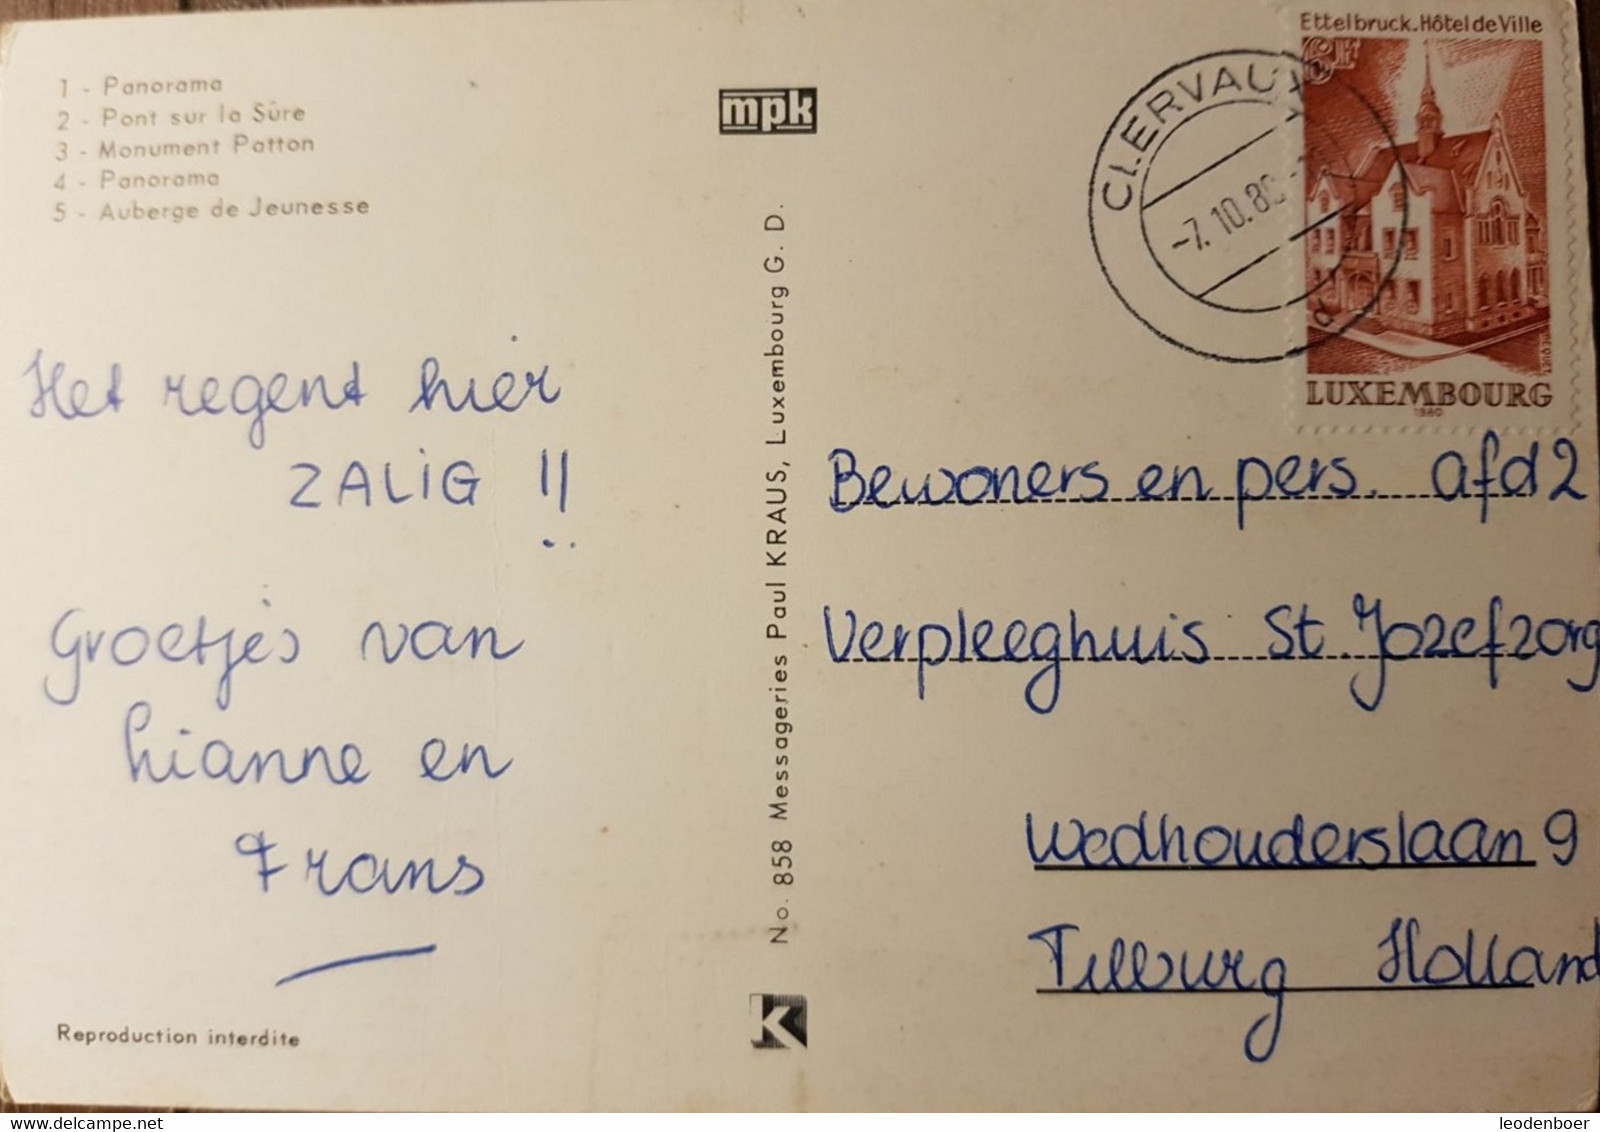 1 - Panorama
2 - Pont sur la Sûre
3 - Monument Patton
4 - Panorama
5 - Auberge de Jeunesse
Het regent hier
ZALIG !!
Groetjes van
hianne en
Frans
Reproduction interdite
mpk
No. 858 Messageries Paul KRAUS, Luxembourg G. D.
K
CLERVAUX
-7.10.80
Ettelbruck. Hôtel de Ville
6F
LUXEMBOURG
1980
Bewoners en pers. afd 2
Verpleeghuis St. Jozefzorg
Wedhouderslaan 9
Tilburg Holland
www.delcampe.net
leodenboer